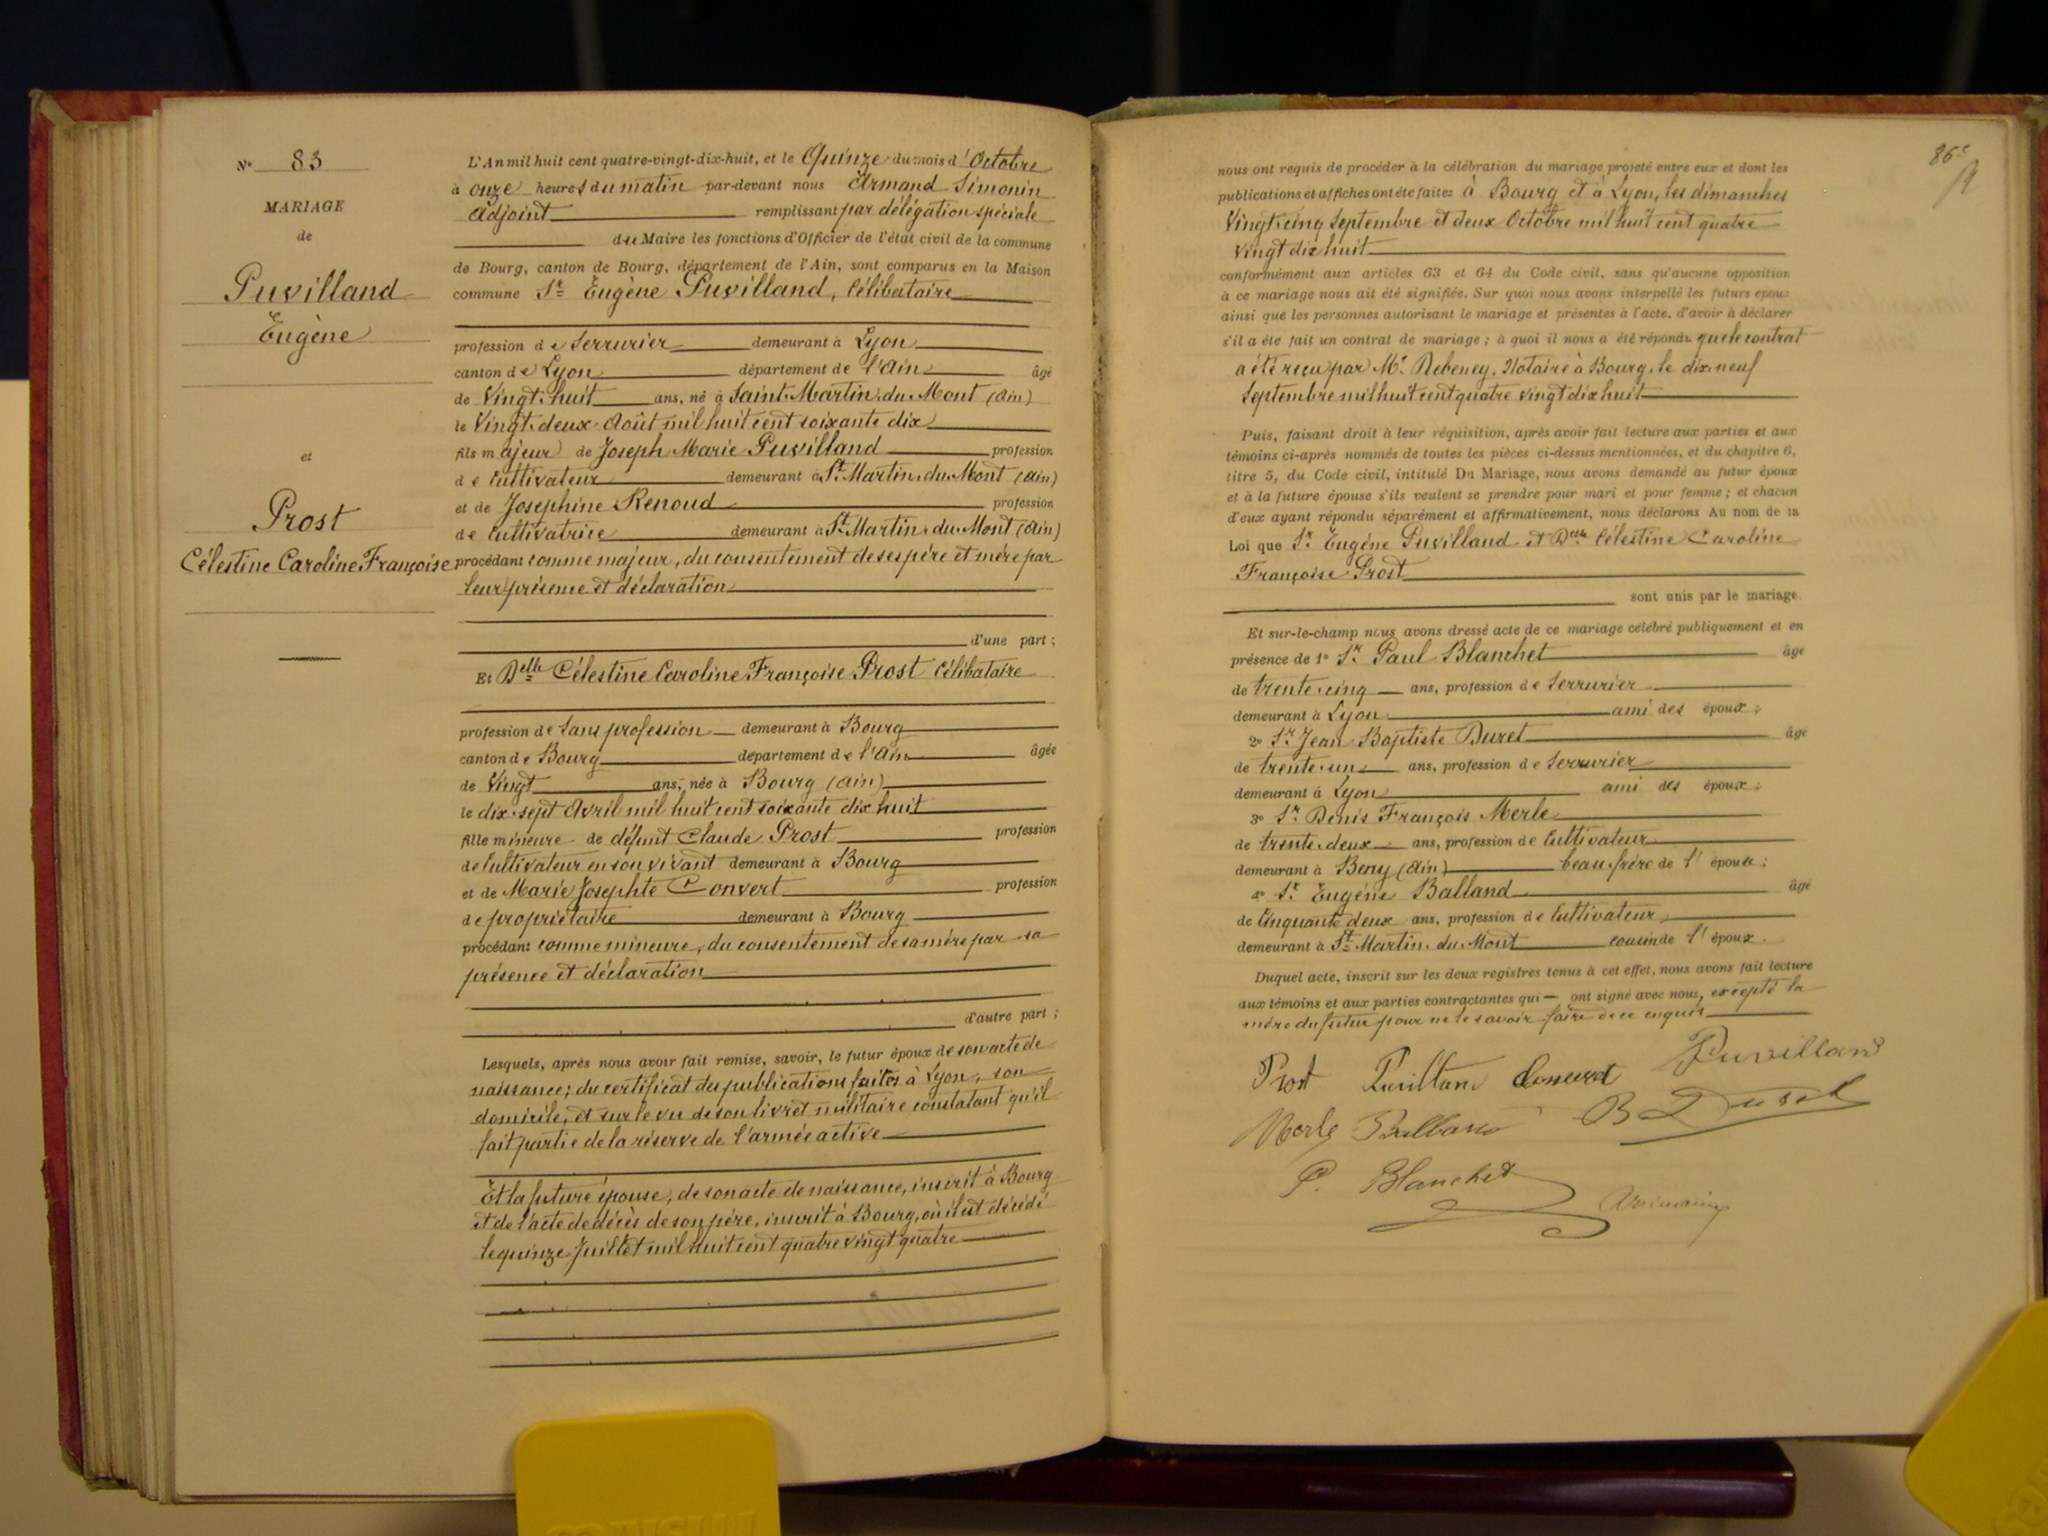 N° 83
MARIAGE
de
Puvilland
Eugène
et
Prost
Célestine Caroline Françoise
L'An mil huit cent quatre-vingt-dix-huit, et le Quinze du mois d'Octobre
à onze heures du matin par-devant nous Armand Simonin
Adjoint remplissant par délégation spéciale
du Maire les fonctions d'Officier de l'état civil de la commune
de Bourg, canton de Bourg, département de l'Ain, sont comparus en la Maison
commune Sr Eugène Puvilland, Célibataire
profession de Serrurier demeurant à Lyon
canton de Lyon département de l'Ain âgé
de Vingt-huit ans, né à Saint-Martin-du-Mont (Ain)
le Vingt-deux Août mil huit cent soixante dix
fils majeur de Joseph Marie Puvilland profession
de Cultivateur demeurant à St Martin-du-Mont (Ain)
et de Josephine Renoud profession
de Cultivatrice demeurant à St Martin-du-Mont (Ain)
procédant comme majeur, du consentement de ses père et mère par
leur présence et déclaration
d'une part ;
Et Delle Célestine Caroline Françoise Prost Célibataire
profession de Sans profession demeurant à Bourg
canton de Bourg département de l'Ain âgée
de Vingt ans, née à Bourg (Ain)
le dix-sept Avril mil huit cent soixante dix huit
fille mineure de défunt Claude Prost profession
de Cultivateur en son vivant demeurant à Bourg
et de Marie Josephte Convert profession
de propriétaire demeurant à Bourg
procédant comme mineure, du consentement de sa mère par sa
présence et déclaration
d'autre part ;
Lesquels, après nous avoir fait remise, savoir, le futur époux de son acte de
naissance ; du certificat des publications faites à Lyon, son
domicile, et sur le vu de son livret militaire constatant qu'il
fait partie de la réserve de l'armée active
Et la future épouse, de son acte de naissance, inscrit à Bourg
et de l'acte de décès de son père, inscrit à Bourg, où il est décédé
le quinze Juillet mil huit cent quatre vingt quatre
86e
nous ont requis de procéder à la célébration du mariage projeté entre eux et dont les
publications et affiches ont été faites à Bourg et à Lyon, les dimanches
Vingt-cinq Septembre et deux Octobre mil huit cent quatre
vingt dix huit
conformément aux articles 63 et 64 du Code civil, sans qu'aucune opposition
à ce mariage nous ait été signifiée. Sur quoi nous avons interpellé les futurs époux
ainsi que les personnes autorisant le mariage et présentes à l'acte, d'avoir à déclarer
s'il a été fait un contrat de mariage ; à quoi il nous a été répondu que le contrat
a été reçu par Me Debeney, Notaire à Bourg, le dix-neuf
Septembre mil huit cent quatre vingt dix huit
Puis, faisant droit à leur réquisition, après avoir fait lecture aux parties et aux
témoins ci-après nommés de toutes les pièces ci-dessus mentionnées, et du chapitre 6,
titre 5, du Code civil, intitulé Du Mariage, nous avons demandé au futur époux
et à la future épouse s'ils veulent se prendre pour mari et pour femme ; et chacun
d'eux ayant répondu séparément et affirmativement, nous déclarons Au nom de la
Loi que Sr Eugène Puvilland et Delle Célestine Caroline
Françoise Prost
sont unis par le mariage.
Et sur-le-champ nous avons dressé acte de ce mariage célébré publiquement et en
présence de 1° Sr Paul Blanchet âgé
de trente-cinq ans, profession de Serrurier
demeurant à Lyon ami des époux ;
2° Sr Jean Baptiste Duret âgé
de trente-un ans, profession de Serrurier
demeurant à Lyon ami des époux ;
3° Sr Denis François Merle
de trente-deux ans, profession de Cultivateur
demeurant à Beny (Ain) beau-frère de l'épouse ;
4° Sr Eugène Balland âgé
de Cinquante deux ans, profession de Cultivateur
demeurant à St Martin-du-Mont cousin de l'époux.
Duquel acte, inscrit sur les deux registres tenus à cet effet, nous avons fait lecture
aux témoins et aux parties contractantes qui ont signé avec nous, excepté la
mère du futur pour ne le savoir faire de ce enquis
Prost Puvilland Convert Puvilland
Merle Balland B Duret
P. Blanchet A Simonin